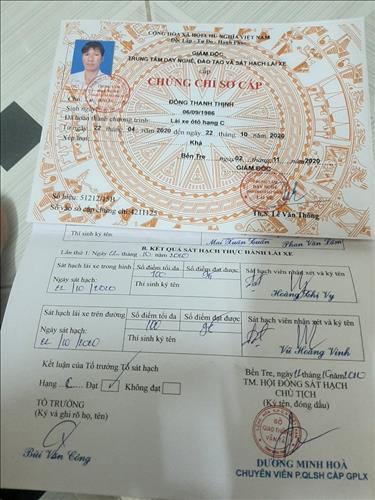 CỘNG HÒA XÃ HỘI CHỦ NGHĨA VIỆT NAM
Độc Lập - Tự Do - Hạnh Phúc
GIÁM ĐỐC
TRUNG TÂM DẠY NGHỀ, ĐÀO TẠO VÀ SÁT HẠCH LÁI XE
cấp
CHỨNG CHỈ SƠ CẤP
ĐỒNG THANH THỊNH
Sinh ngày 06/09/1986
Đã hoàn thành chương trình Lái xe ôtô hạng C
Từ ngày 22 tháng 04 năm 2020 đến ngày 22 tháng 10 năm 2020
Xếp loại: Khá
Bến Tre, ngày 02 tháng 11 năm 2020
GIÁM ĐỐC
Số hiệu: 51212/15H
Số vào sổ cấp chứng chỉ: 4211125
Th.S Lê Văn Thông
Thí sinh ký tên
Mai Xuân Phan Văn
B. KẾT QUẢ SÁT HẠCH THỰC HÀNH LÁI XE
Lần thứ 1: Ngày 22 tháng 10 năm 2020
Sát hạch lái xe trong hình Số điểm tối đa Số điểm đạt được Sát hạch viên nhận xét và ký tên
Ngày sát hạch: 100
22 / 10 / 2020 Thí sinh ký tên
Hoàng Vy
Sát hạch lái xe trên đường Số điểm tối đa Số điểm đạt được Sát hạch viên nhận xét và ký tên
Ngày sát hạch: 100
22 / 10 / 2020 Thí sinh ký tên
Vũ Hoàng Vinh
Kết luận của Tổ trưởng Tổ sát hạch
Hạng C Đạt Không đạt
Bến Tre, ngày 22 tháng 10 năm 2020
TM. HỘI ĐỒNG SÁT HẠCH
CHỦ TỊCH
TỔ TRƯỞNG
(Ký tên, đóng dấu)
(Ký và ghi rõ họ, tên)
Bùi Văn Công
DƯƠNG MINH HOÀ
CHUYÊN VIÊN P.QLSH CẤP GPLX